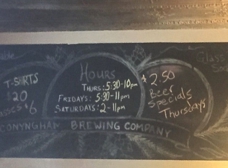 Hours
T-SHIRTS
$20
$6
THURS: 5:30-10pm
FRIDAYS: 5:30-11pm
SATURDAYS: 2-11pm
$2.50
Beer
Specials
Thursdays
CONYNGHAM BREWING COMPANY